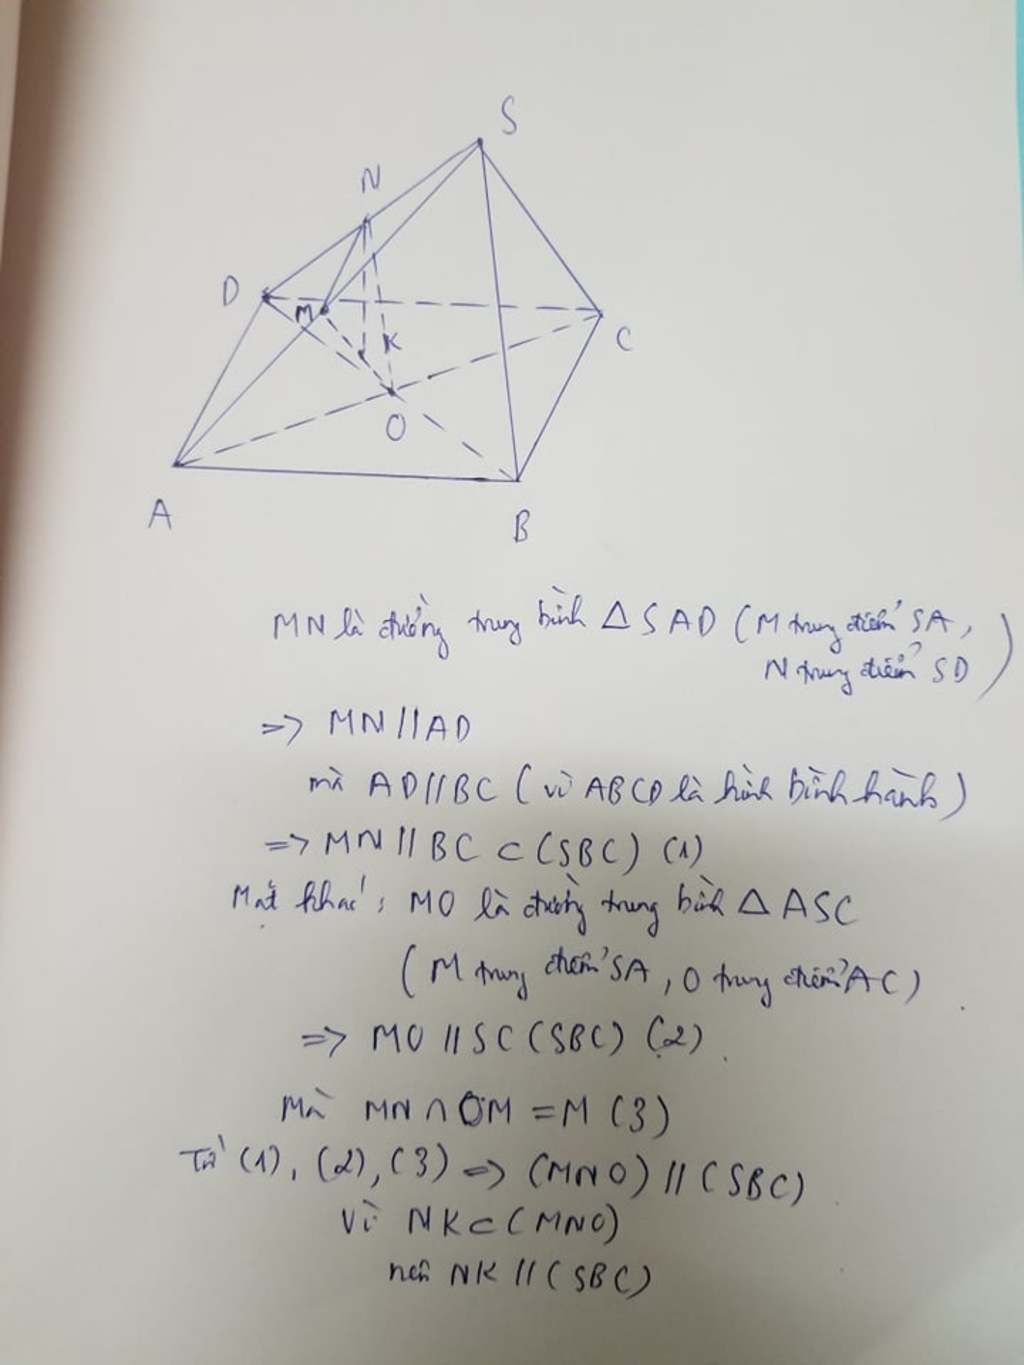 S
N
D
M
K
C
O
A
B
MN là đường trung bình △SAD (M trung điểm SA,
N trung điểm SD)
=> MN // AD
mà AD // BC (vì ABCD là hình bình hành)
=> MN // BC ⊂ (SBC) (1)
Mặt khác: MO là đường trung bình △ASC
(M trung điểm SA, O trung điểm AC)
=> MO // SC (SBC) (2)
Mà MN ∩ OM = M (3)
Từ (1), (2), (3) => (MNO) // (SBC)
Vì NK ⊂ (MNO)
nên NK // (SBC)